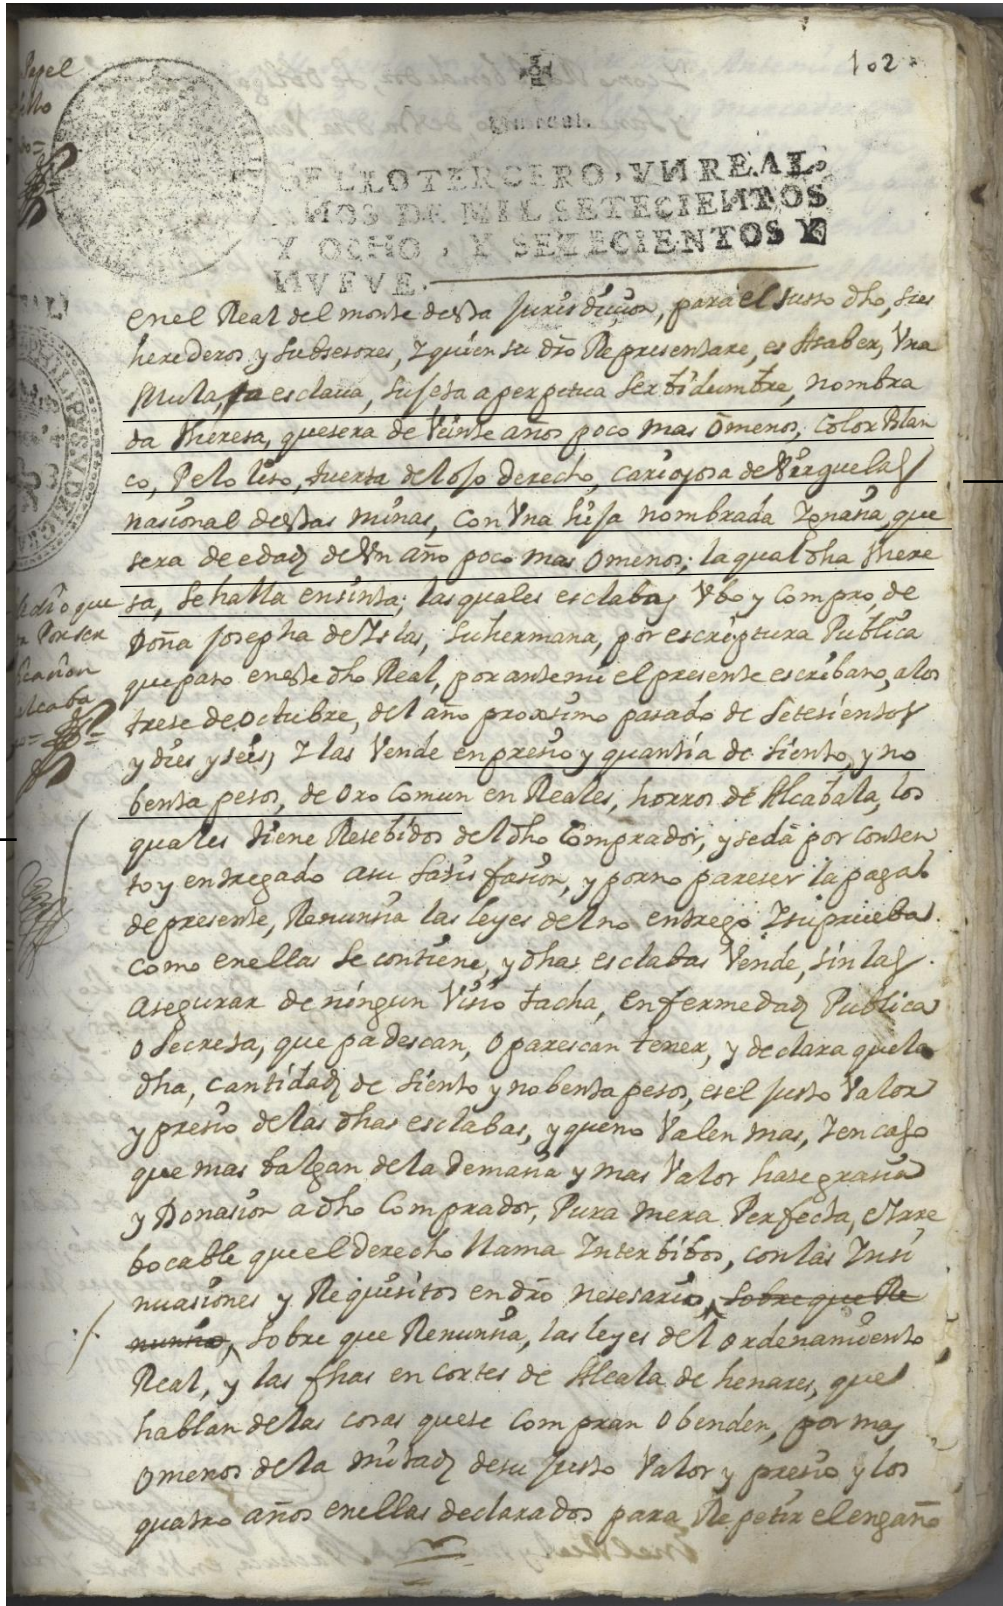 102
SELLO TERCERO, VN REAL,
AÑOS DE MIL SETECIENTOS
Y OCHO, Y SETECIENTOS Y
NVEVE.
en el Real del monte desta Jurisdiçion, para el susso dho, sus
herederos y Subsesores, y quien su dro Representare, es Asaber, Vna
Mulata esclaua, Sujeta a perpetua Serbidumbre, nombra
da theresa, quesera de Veinte años poco mas ô menos, Color Blan
co, Pelo liso, tuerta del ojo derecho, cariojosa de Virguelas
nasional destas minas, Con Vna hija nombrada Ygnasia, que
sera de edad de Vn año poco mas o menos; la qual dha there
sa, Se halla ensinta; las quales esclabas Vbo y Compro, de
Doña Josepha de Yslas, Su hermana, por escriptura Publica
que paso eneste dho Real, por ante mi el presente escribano, a los
trese de Octubre, del año proximo pasado de Setesientos
y dies y seis, Y las Vende en presio y quantia de Siento, y no
benta pesos, de Oro Comun en Reales, horros de Alcabala, los
quales tiene Resebidos del dho Comprador, y se dâ por conten
to y entregado a su Satisfasion, y por no pareser la paga
de presente, Renunsia las leyes del no entrego Ysu prueba
como en ellas Se contiene, y dhas esclabas Vende, Sin las
asegurar de ningun Visio tacha, enfermedad Publica
o Secreta, que padescan, o parescan tener, y declara que la
dha, cantidad de Siento y nobenta pesos, es el justo Valor
y presio de las dhas esclabas, y que no Valen mas, Y en caso
que mas balgan de la demasia y mas Valor hase grasia
y Donasion a dho Comprador, Pura mera Perfecta, e Yrre
bocable que el derecho llama Ynterbibos, con las Ynsi
nuasiones y Requisitos en dro nesesarios, Sobre que Re
nunsia, Sobre que Renunsia, las leyes del ordenamiento
Real, y las fhas en cortes de Alcala de henares, que
hablan de las cosas que se Compran o benden, por mas
o menos de la mitad de su justo Valor y presio y los
quatro años en ellas declarados para Repetir el engaño